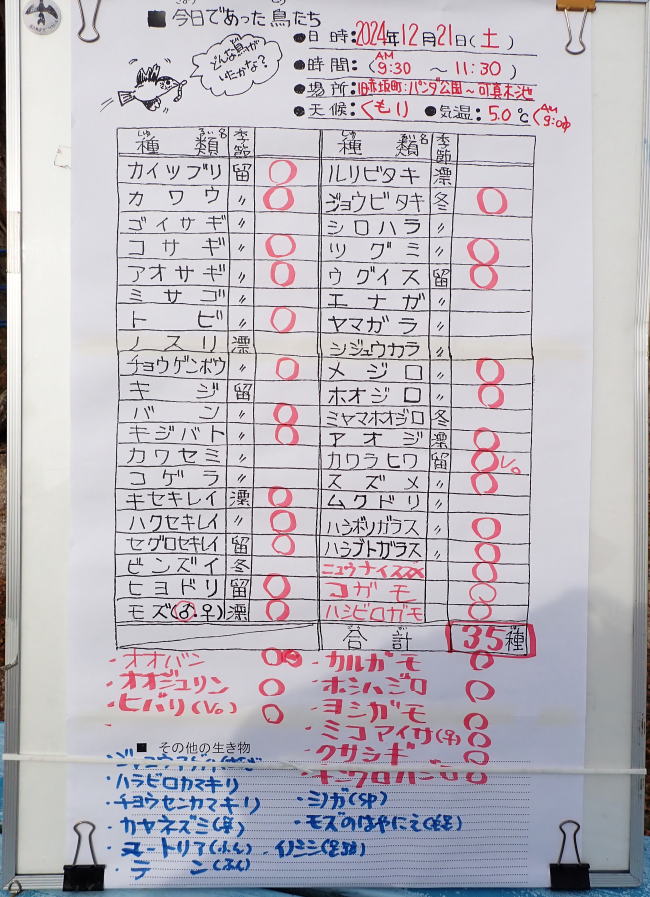 ■ 今日であった鳥たち
どんな鳥が
いたかな?
● 日時: 2024年12月21日(土)
● 時間: (AM 9:30 ~ 11:30)
● 場所: 旧赤坂町:パンダ公園~可真木池
● 天候: くもり ● 気温: 5.0℃
種類名 季節
カイツブリ 留 ○
カワウ 〃 ○
ゴイサギ 〃
コサギ 〃 ○
アオサギ 〃 ○
ミサゴ 〃
トビ 〃 ○
ノスリ 漂
チョウゲンボウ 〃 ○
キジ 留
バン 〃 ○
キジバト 〃 ○
カワセミ 〃
コゲラ 〃
キセキレイ 漂 ○
ハクセキレイ 〃 ○
セグロセキレイ 留 ○
ビンズイ 冬
ヒヨドリ 留 ○
モズ(♂・♀) 漂 ○
種類名 季節
ルリビタキ 漂
ジョウビタキ 冬 ○
シロハラ 〃
ツグミ 〃 ○
ウグイス 留 ○
エナガ 〃
ヤマガラ 〃
シジュウカラ 〃
メジロ 〃 ○
ホオジロ 〃 ○
ミヤマホオジロ 冬
アオジ 漂 ○
カワラヒワ 留 ○ Vo
スズメ 〃 ○
ムクドリ 〃
ハシボソガラス 〃 ○
ハシブトガラス 〃 ○
ニュウナイスズメ ○
コガモ ○
ハシビロガモ ○
合計 35種
・オオバン ○
・オオジュリン ○
・ヒバリ(Vo) ○
・カルガモ ○
・ホシハジロ ○
・ヨシガモ ○
・ミコアイサ(♀) ○
・クサシギ ○
■ その他の生き物
・ハラビロカマキリ
・チョウセンカマキリ
・カヤネズミ(巣)
・ヌートリア(ふん)
・テン(ふん)
・シカ(SP)
・モズのはやにえ
・イノシシ